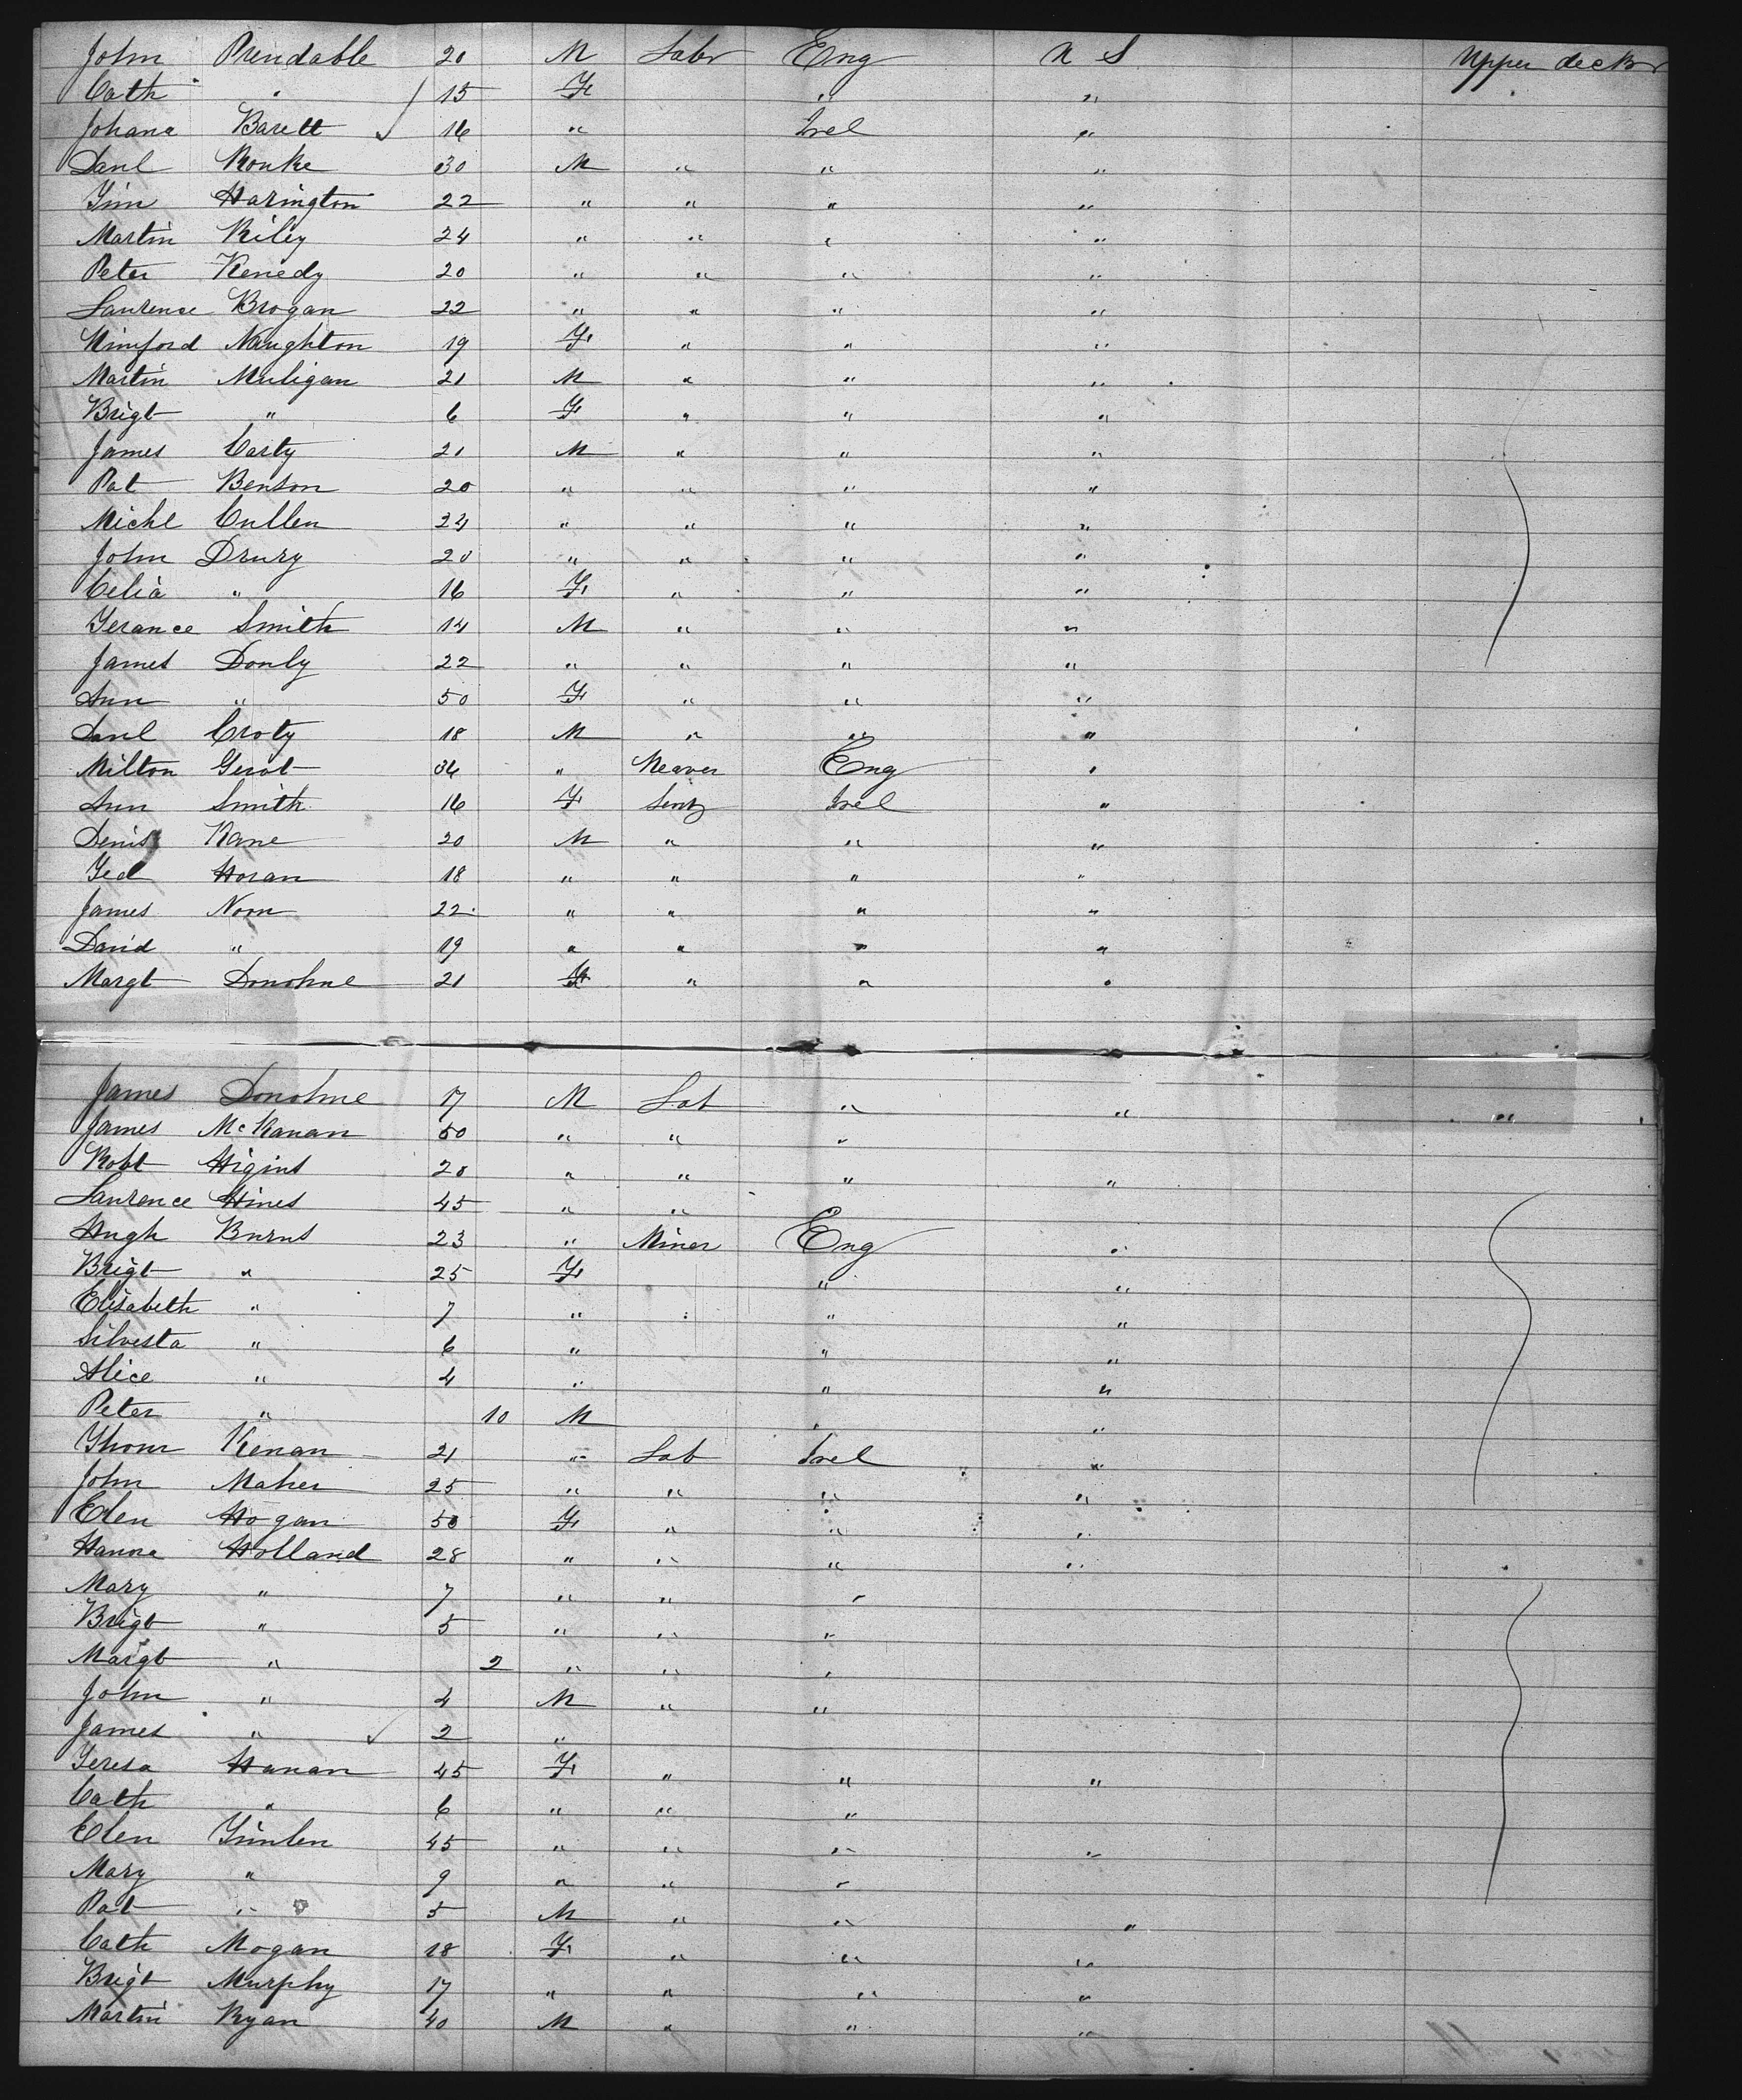 John Prendable 20 M Labr Eng U S Upper deck
Cath " 15 F " "
Johana Barett 16 " Irel "
Danl Rouke 30 M " " "
Tim Harington 22 " " " "
Martin Riley 24 " " " "
Peter Kenedy 20 " " " "
Laurence Brogan 22 " " " "
Winiford Naughton 19 F " " "
Martin Muligan 21 M " " "
Brigt " 6 F " " "
James Carty 21 M " " "
Pat Benson 20 " " " "
Michl Cullen 24 " " " "
John Drury 20 " " " "
Celia " 16 F " " "
Terance Smith 14 M " " "
James Donly 22 " " " "
Ann " 50 F " " "
Danl Croty 18 M " " "
Milton Gerat 36 " Weaver Eng "
Ann Smith 16 F Irel "
Denis Kane 20 M " " "
Ted Horan 18 " " " "
James Noon 22 " " " "
David " 19 " " " "
Margt Donohue 21 F " " "
James Donohue 17 M Lab " " "
James McKanan 50 " " "
Robt Higins 20 " " " "
Laurence Hines 45 " "
Hugh Burns 23 " Miner Eng "
Brigt " 25 F " "
Elisabeth " 7 " " "
Silvesta " 6 " " "
Alice " 4 " " "
Peter " 10 M " "
Thom Kenan 21 " Lab Irel "
John Maher 25 " " " "
Elen Hogan 50 F " " "
Hanna Holland 28 " " " "
Mary " 7 " " "
Brigt " 5 " " "
Margt " 2 " " "
John " 4 M " "
James " 2 "
Teresa Hanan 45 F " " "
Cath " 6 " " "
Elen Timlen 45 " " " "
Mary " 9 " " "
Pat " 5 M " " "
Cath Mogan 18 F " " "
Brigt Murphy 17 " " " "
Martin Ryan 40 M " " "